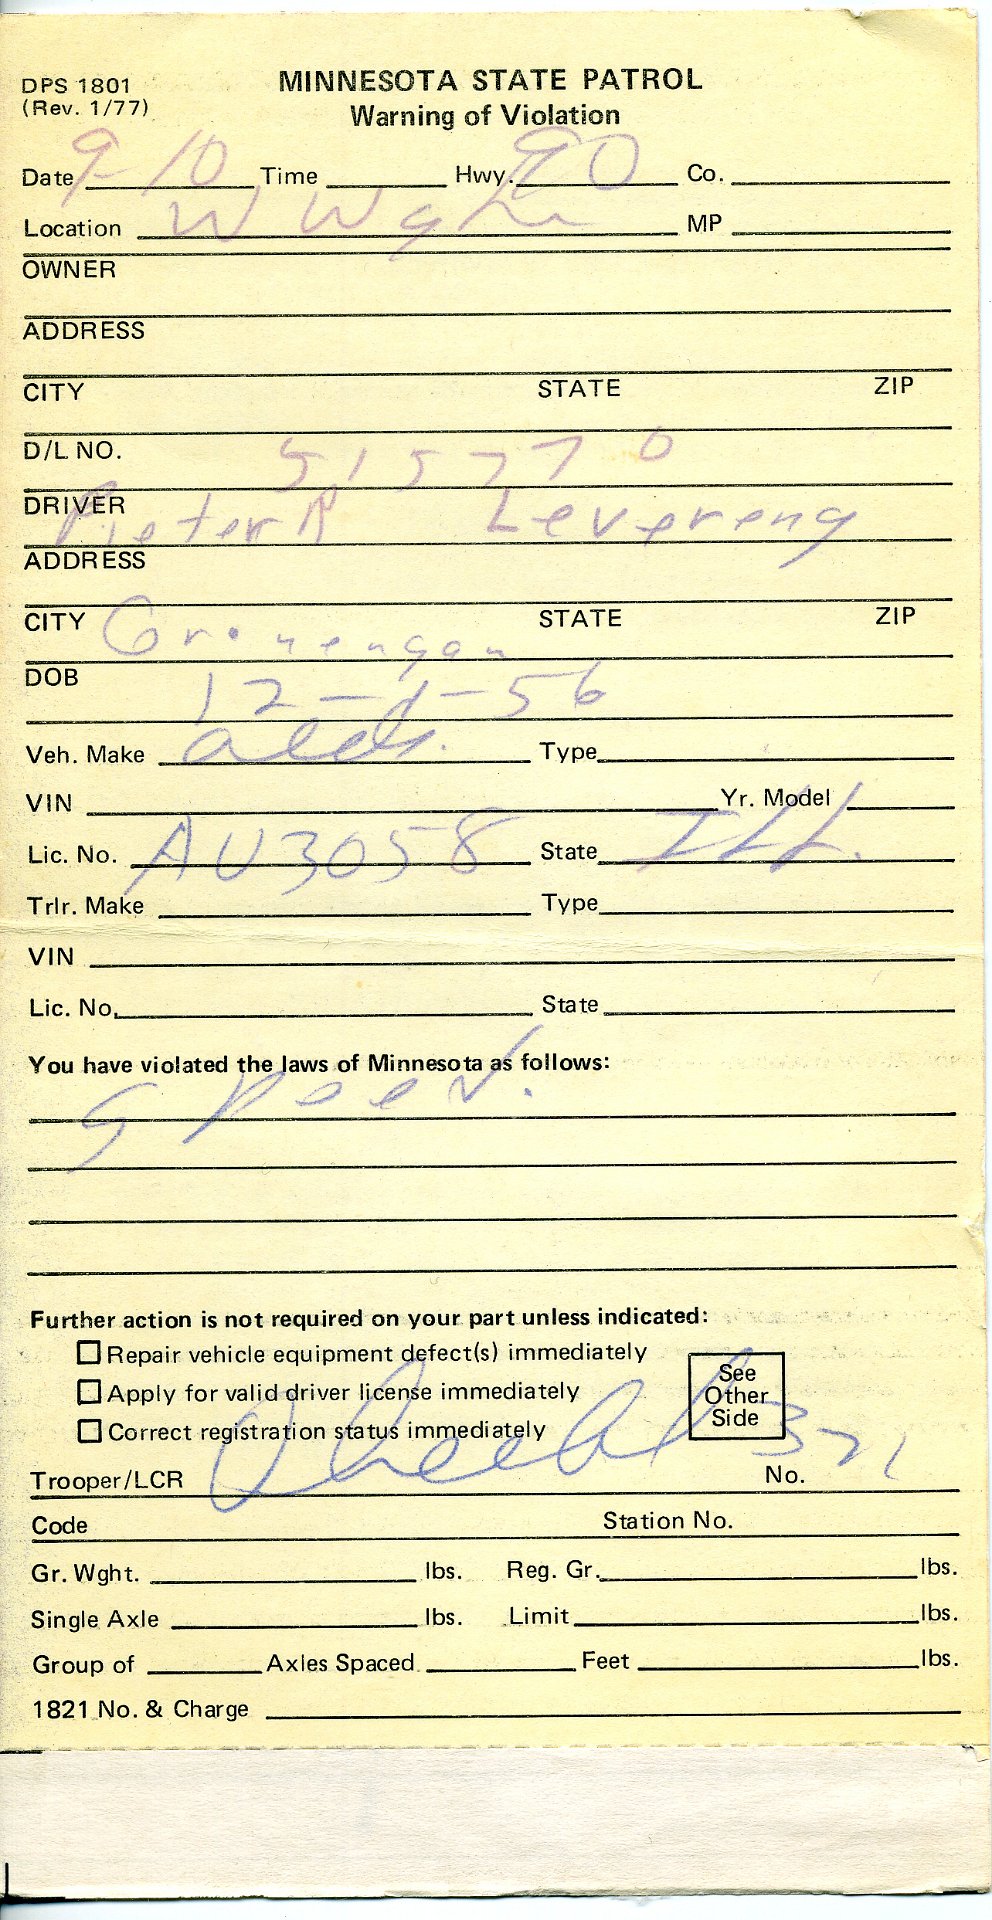 DPS 1801 MINNESOTA STATE PATROL
(Rev. 1/77) Warning of Violation
Date 9-10 Time Hwy. 90 Co.
Location W MP
OWNER
ADDRESS
CITY STATE ZIP
D/L NO. 515770
DRIVER Pieter R Levereng
ADDRESS
CITY Gronengan STATE ZIP
DOB 12-1-56
Veh. Make Olds. Type
VIN Yr. Model
Lic. No. AU3058 State ILL.
Trlr. Make Type
VIN
Lic. No. State
You have violated the laws of Minnesota as follows:
Speed.
Further action is not required on your part unless indicated:
Repair vehicle equipment defect(s) immediately
Apply for valid driver license immediately
Correct registration status immediately
See
Other
Side
Trooper/LCR No. 321
Code Station No.
Gr. Wght. lbs. Reg. Gr. lbs.
Single Axle lbs. Limit lbs.
Group of Axles Spaced Feet lbs.
1821 No. & Charge